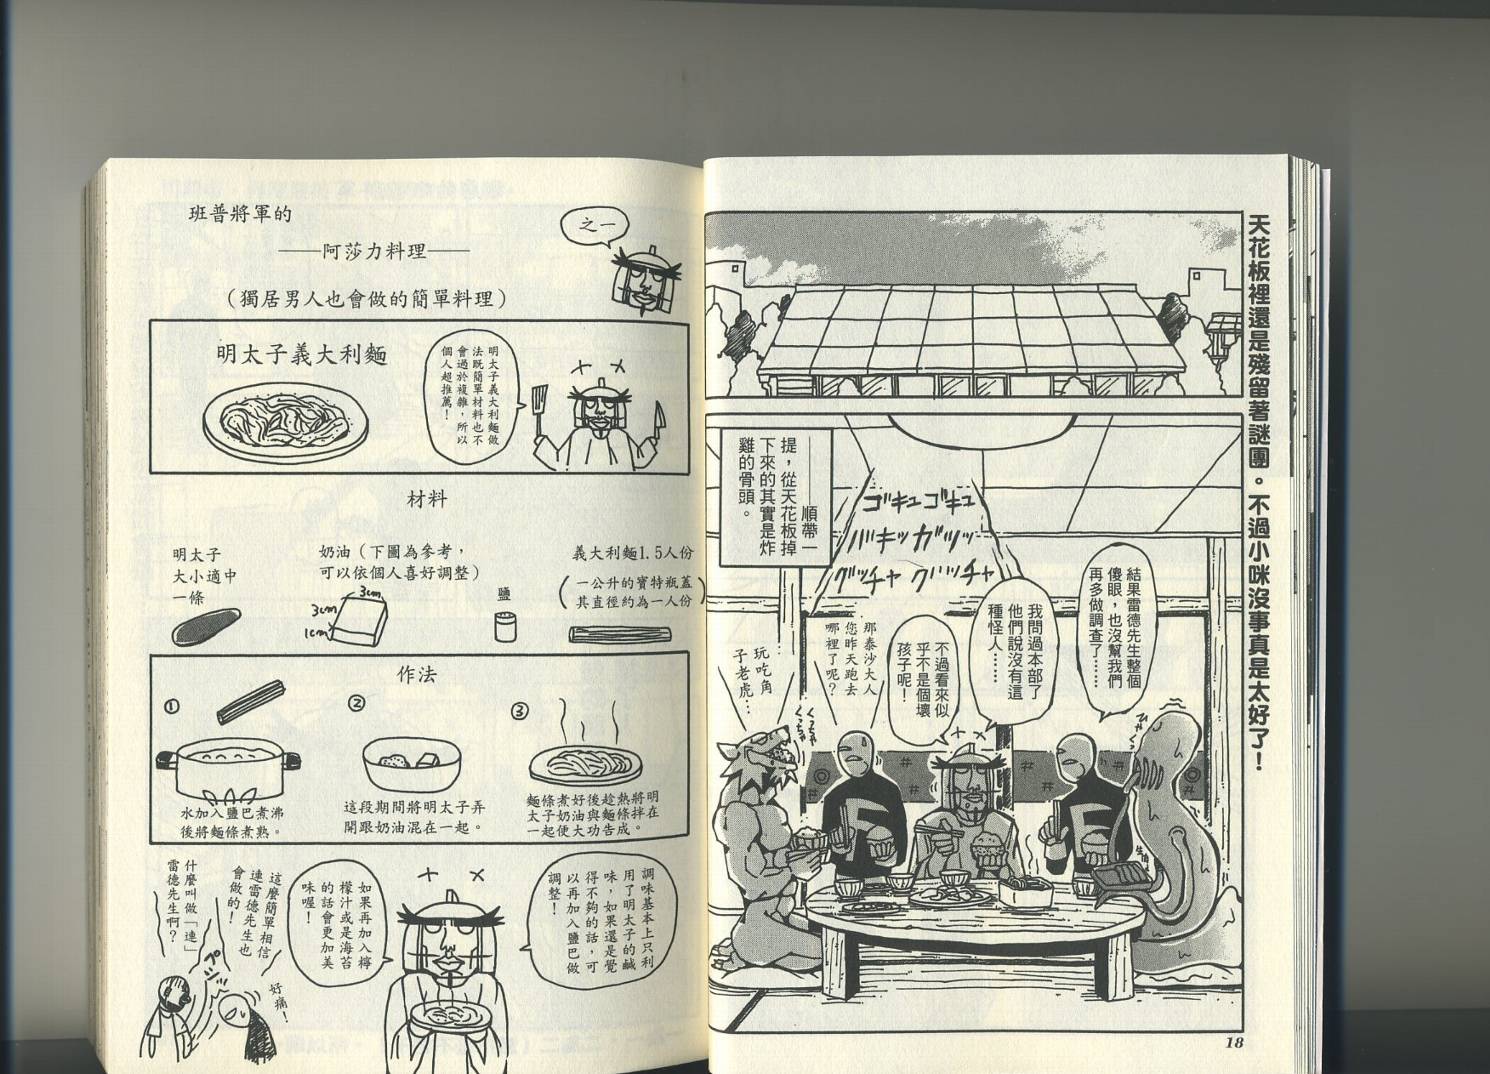 天花板裡還是殘留著謎團。不過小咪沒事真是太好了!
————順帶一
提,從天花板掉
下來的其實是炸
雞的骨頭。
ゴキュゴキュ
バキッガツッ
グッチャグッチャ
結果雷德先生整個
傻眼,也沒幫我們
再多做調查了……
我問過本部了
他們說沒有這
種怪人……
不過看來似
乎不是個壞
孩子呢!
那泰沙大人
您昨天跑去
哪裡了呢?
玩吃角
子老虎…
くっちゃ
くっちゃ
生肉
18
班普將軍的
——阿莎力料理——
(獨居男人也會做的簡單料理)
之一
明太子義大利麵
明太子義大利麵做
法既簡單材料也不
會過於複雜,所以
個人超推薦!
材料
明太子
大小適中
一條
奶油(下圖為參考,
可以依個人喜好調整)
3cm
3cm
1cm
鹽
義大利麵1.5人份
(一公升的寶特瓶蓋
其直徑約為一人份)
作法
①
水加入鹽巴煮沸
後將麵條煮熟。
②
這段期間將明太子弄
開跟奶油混在一起。
③
麵條煮好後趁熱將明
太子奶油與麵條拌在
一起便大功告成。
調味基本上只利
用了明太子的鹹
味,如果還是覺
得不夠的話,可
以再加入鹽巴做
調整!
如果再加入檸
檬汁或是海苔
的話會更加美
味喔!
這麼簡單相信
連雷德先生也
會做的!
什麼叫做「連」
雷德先生啊?
好痛!